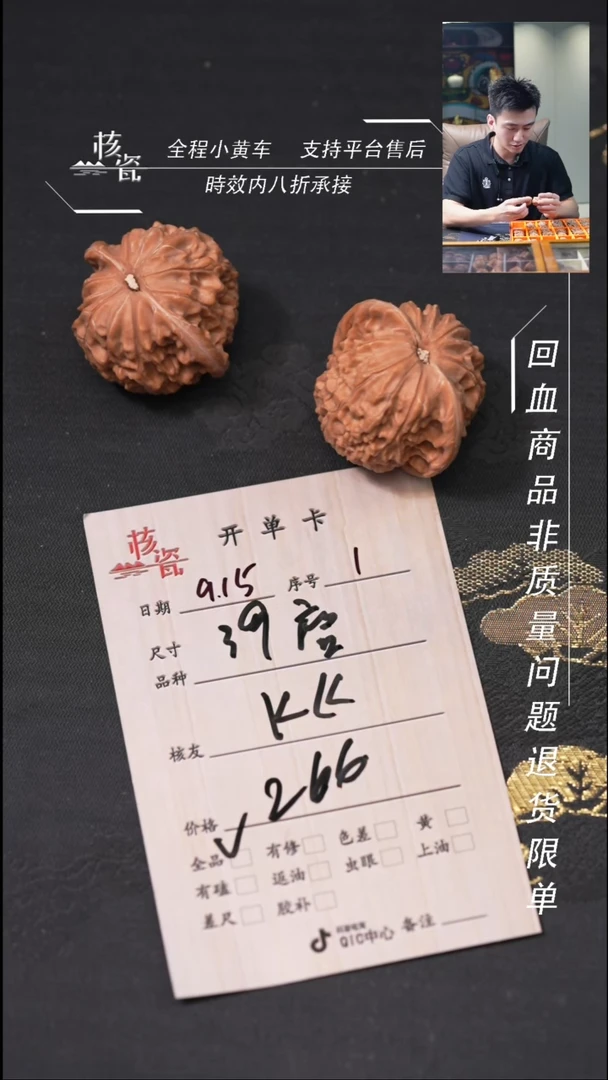 核瓷
全程小黄车 支持平台售后
時效内八折承接
回血商品非质量问题退货限单
核瓷
开单卡
日期 9.15 序号 1
尺寸 39
品种
核友 KK
价格 266
全品 有修 色差 黄
有磕 返油 虫眼 上油
差尺 胶补
QIC中心 备注